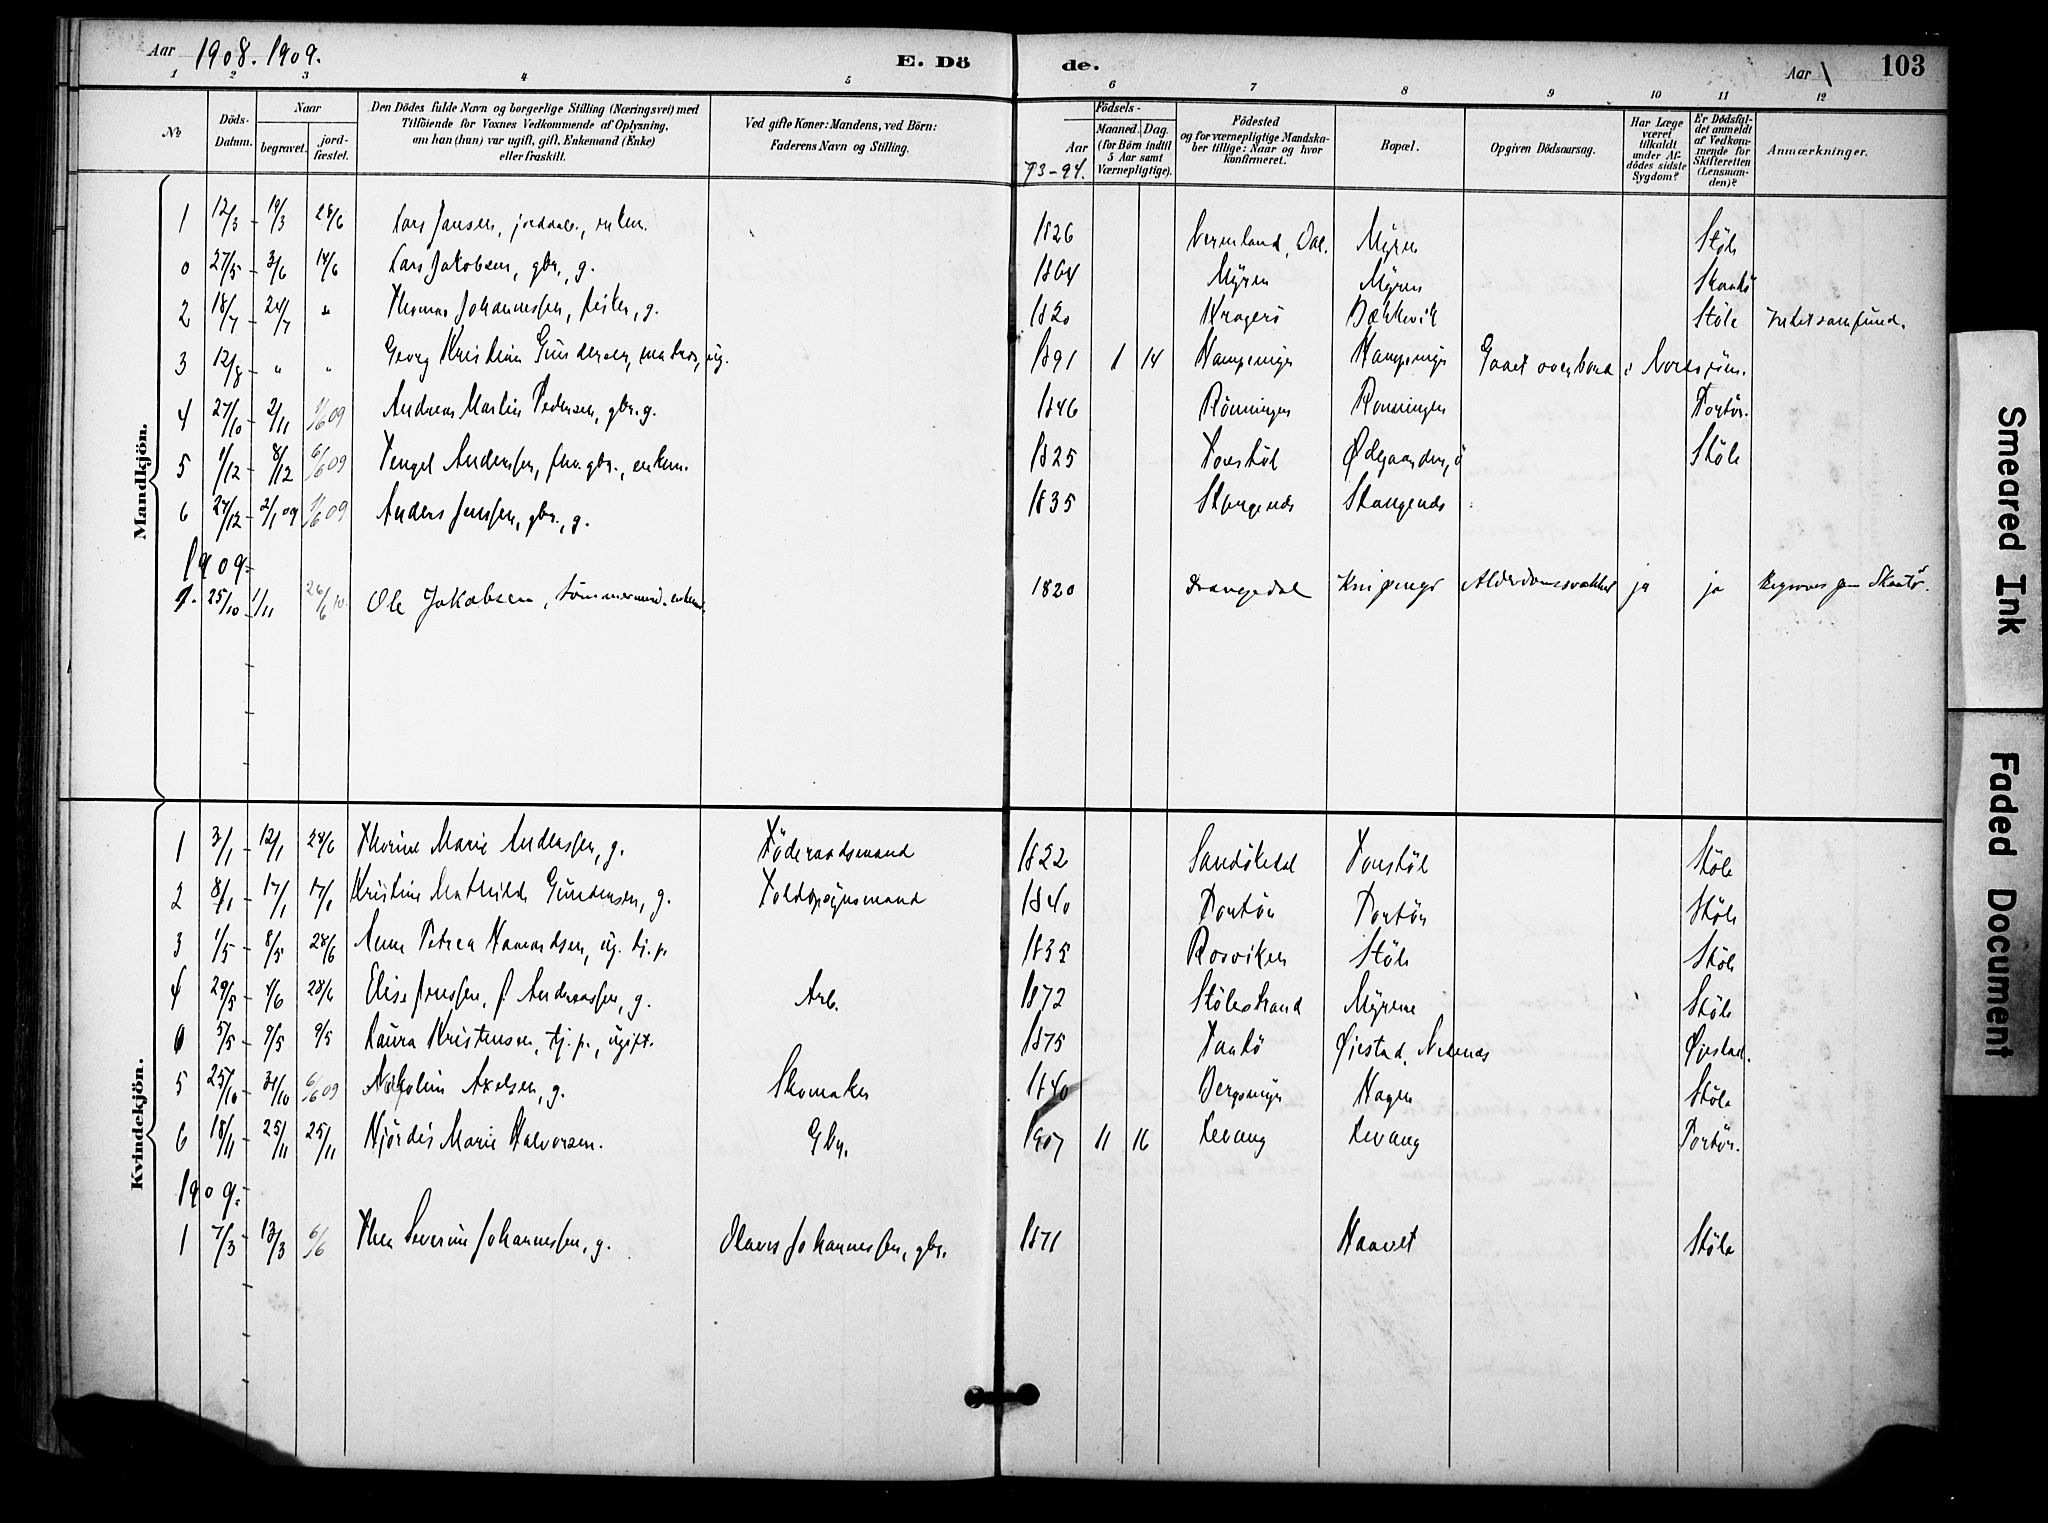 Aar 1908. 1909.
E. Dö
de.
Aar
103
1 2 3 4 5 6 7 8 9 10 11 12
No
Döds-Datum.
Naar
begravet.
jord-fæstet.
Den Dödes fulde Navn og borgerlige Stilling (Næringsvei) med
Tilföiende for Voxnes Vedkommende af Oplysning,
om han (hun) var ugift, gift, Enkemand (Enke)
eller fraskilt.
Ved gifte Koner: Mandens, ved Börn:
Faderens Navn og Stilling.
Födsels-
Aar
73-94.
Maaned. Dag.
(for Börn indtil
5 Aar samt
Værnepligtige).
Födested
og for værnepligtige Mandska-
ber tillige: Naar og hvor
konfirmeret.
Bopæl.
Opgiven Dödsaarsag.
Har Læge
været
tilkaldt
under Af-
dödes sidste
Sygdom?
Er Dödsfal-
det anmeldt
af Vedkom-
mende for
Skifteretten
(Lensman-
den)?
Anmærkninger.
Mandkjön.
1 12/3 19/3 28/6 Lars Jansen, enkem. 1826 Myren Støle
0 27/5 3/6 14/6 Lars Jakobsen, gbr., g. 1864 Myren Myren Skaatö
2 18/7 24/7 Thomas Johannessen, fisker, g. 1820 Kragerö Støle
3 12/8 " " Georg Kristian Gundersen, matros, ug. 1891 1 14 Gaaet overbord i Nordsjøen.
4 27/10 2/11 1/6 09 Andreas Martin Pedersen, gbr. g. 1846 Rönningen Rønningen Portör.
5 1/12 8/12 6/6 09 Tengel Anderssen, fhv. gbr., enkem. 1825 Tonstöl Støle
6 27/12 2/1 09 1/6 09 Anders Jenssen, gbr., g. 1835 Stangenes Stangenes
1909.
25/10 1/11 26/6 10. Ole Jakobsen, tømmermand. enkem. 1820 Drangedal Alderdomssvækkelse ja ja
Kvindekjön.
1 3/1 12/1 28/6 Thorine Marie Anderssen, g. Föderaadsmand 1822 Sandökedal Tonstöl Støle
2 8/1 17/1 17/1 Kristine Mathilde Gundersen, g. Toldopsynsmand 1840 Portör Portör Støle
3 1/5 8/5 28/6 Anne Petrea Haavardsen, ug. tj. p. 1835 Rosviken Støle Støle
4 29/5 4/6 28/6 Elise Jenssen, f. Andreassen, g. Arb. 1872 Stølestrand Myrene Støle
0 5/5 9/5 9/5 Laura Kristensen, tj. p., ugift. 1875 Øiestad, Nedenæs Øiestad.
5 25/10 31/10 6/6 09 Nikoline Axelsen, g. Skomaker 1840 Bergsmyr Hagen Støle
6 18/11 25/11 25/11 Hjördis Marie Halvorsen. Gbr. 1907 11 16 Levang Levang Portör.
1909.
1 7/3 13/3 6/6 Thea Severine Johannessen, g. Olaves Johannessen, gbr. 1871 Haavet Støle
Smeared Ink
Faded Document